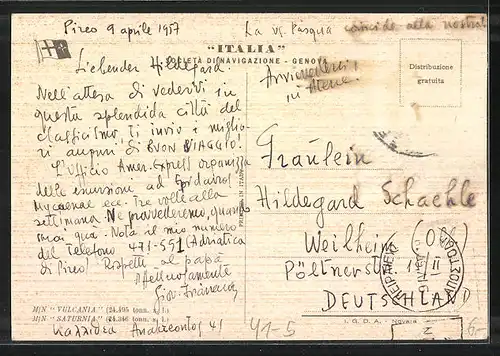 Pireo 9 aprile 1957
La vs. Pasqua coincide alla nostra!
"ITALIA"
SOCIETÀ DI NAVIGAZIONE - GENOVA
Distribuzione
gratuita
Liebender Hildegard
Arrivederci
in Atene
Nell'attesa di vedervi in
questa splendida città del
classicismo, ti invio i miglio-
ri auguri di BUON VIAGGIO!
L'Ufficio Amer. Express organizza
delle escursioni ad Epidauro,
Mycenae ecc. Tre volte alla
settimana. Ne provvederemo, quando
sarai qua. Nota il mio numero
del telefono 471-551 (Adriatica
di Pireo). Rispetti al papà
Affettuosamente
Fräulein
Hildegard Schaehle
Weilheim (Obb)
Pöltnerstr. II
DEUTSCHLAND
PRINTED IN ITALY
M/N "VULCANIA" (24.495 tonn. s. l.)
M/N "SATURNIA" (24.346 tonn. s. l.)
I. G. D. A. - Novara
41-5
6-